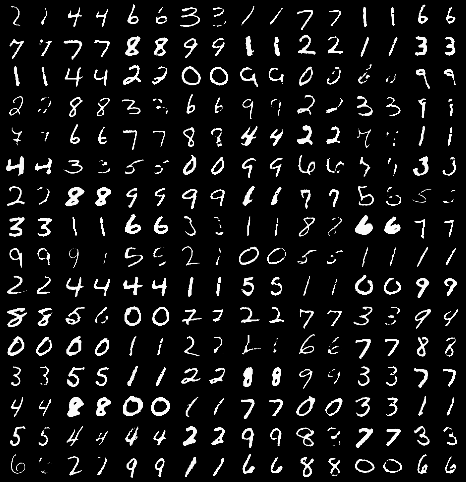 2 4 4 6 6 3 3 1 1 7 7 1 1 6 6
7 7 7 7 8 8 9 9 1 1 2 2 1 1 3 3
1 1 4 4 2 2 0 0 9 9 0 0 6 9 9
2 2 8 8 3 3 6 6 9 9 2 2 3 3 9 9
7 7 6 6 7 7 8 8 4 4 2 2 7 1 1
4 4 3 3 5 5 0 0 9 9 6 6 7 7 3 3
2 2 8 8 9 9 9 9 1 1 7 7 5 5 5 5
3 3 1 1 6 6 3 3 1 1 8 8 6 6 7 7
9 9 9 5 5 2 0 0 5 5 1 1 1 1
2 2 4 4 4 4 1 1 5 5 1 1 0 0 9 9
8 8 5 6 0 0 7 7 2 2 7 7 3 3 9 9
0 0 0 0 1 1 2 2 1 6 6 7 7 8 8
3 3 5 5 1 1 2 2 8 8 9 9 3 3 7 7
4 4 8 8 0 0 1 1 7 7 0 0 3 3 1 1
5 5 4 4 4 4 2 2 9 9 8 8 7 7 3 3
6 2 2 9 9 1 1 6 6 8 8 0 0 6 6